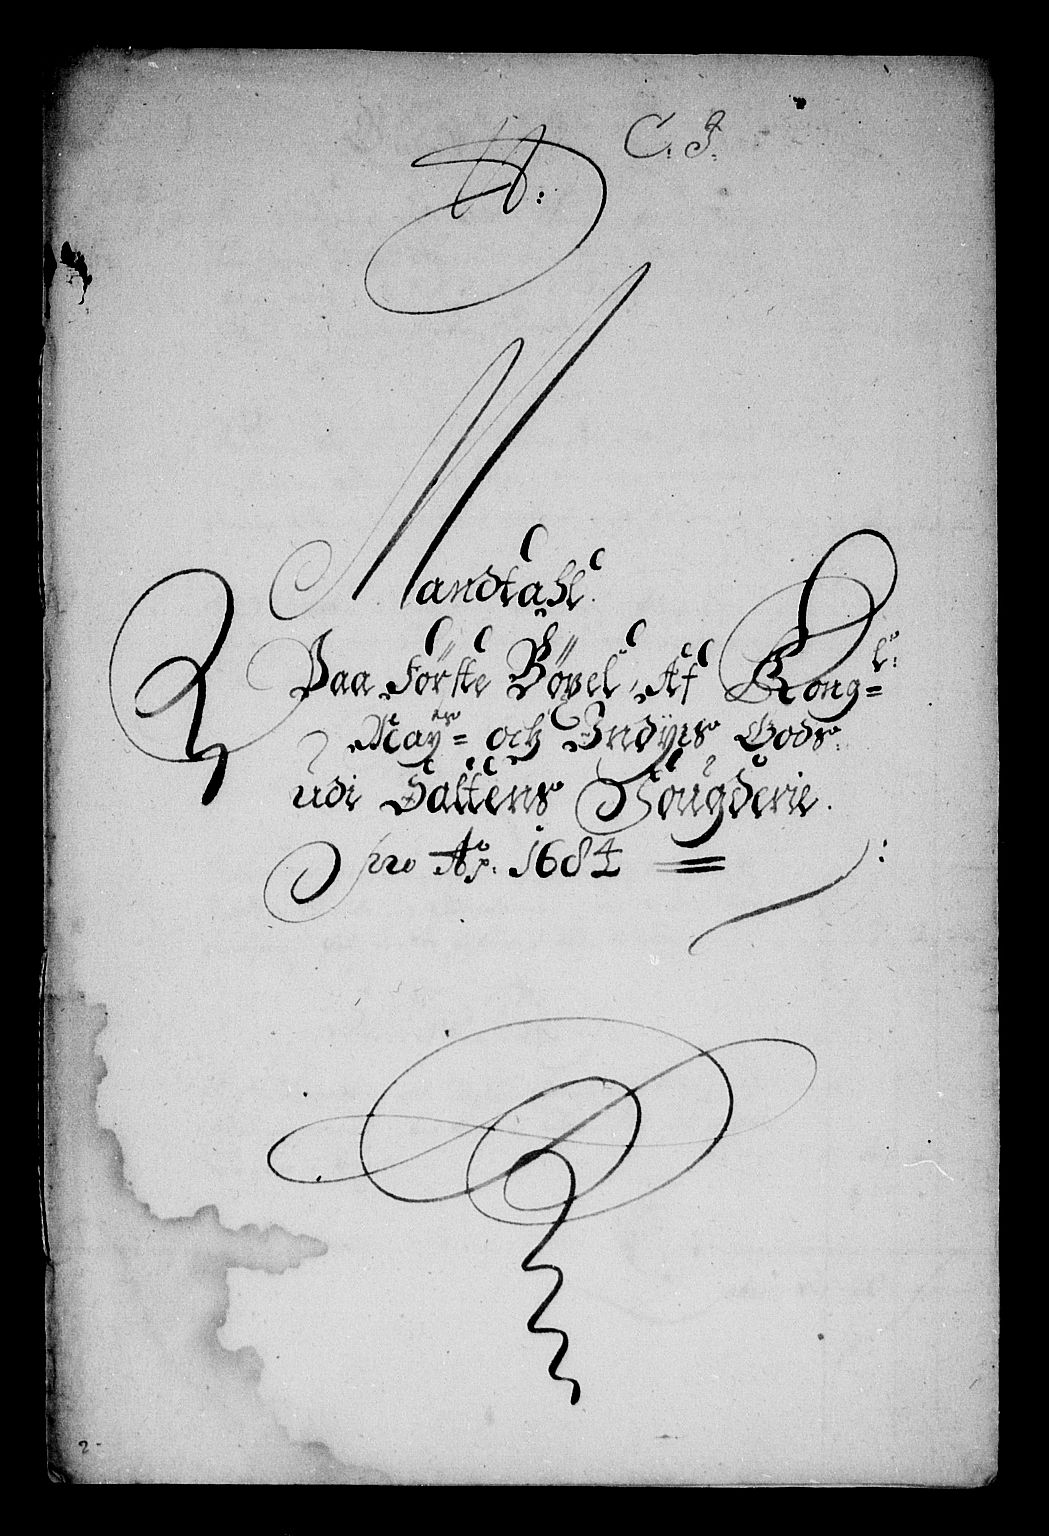 C. J.
Mandtahl.
Paa Förste Böyel Af Kong=l:
May= och Indÿrs Gods.
udi Saltens Fougderie.
pro Aō. 1684
2